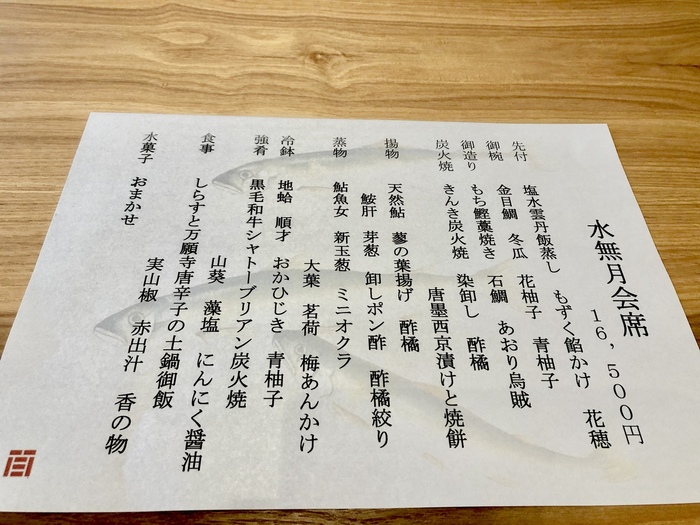 水無月会席
16,500円
先付 塩水雲丹飯蒸し もずく餡かけ 花穂
御椀 金目鯛 冬瓜 花柚子 青柚子
御造り もち鰹藁焼き 石鯛 あおり烏賊
炭火焼 きんき炭火焼 染卸し 酢橘
唐墨西京漬けと焼餅
揚物 天然鮎 蓼の葉揚げ 酢橘
鮟肝 芽葱 卸しポン酢 酢橘絞り
蒸物 鮎魚女 新玉葱 ミニオクラ
大葉 茗荷 梅あんかけ
冷鉢 地蛤 順才 おかひじき 青柚子
強肴 黒毛和牛シャトーブリアン炭火焼
山葵 藻塩 にんにく醤油
食事 しらすと万願寺唐辛子の土鍋御飯
実山椒 赤出汁 香の物
水菓子 おまかせ